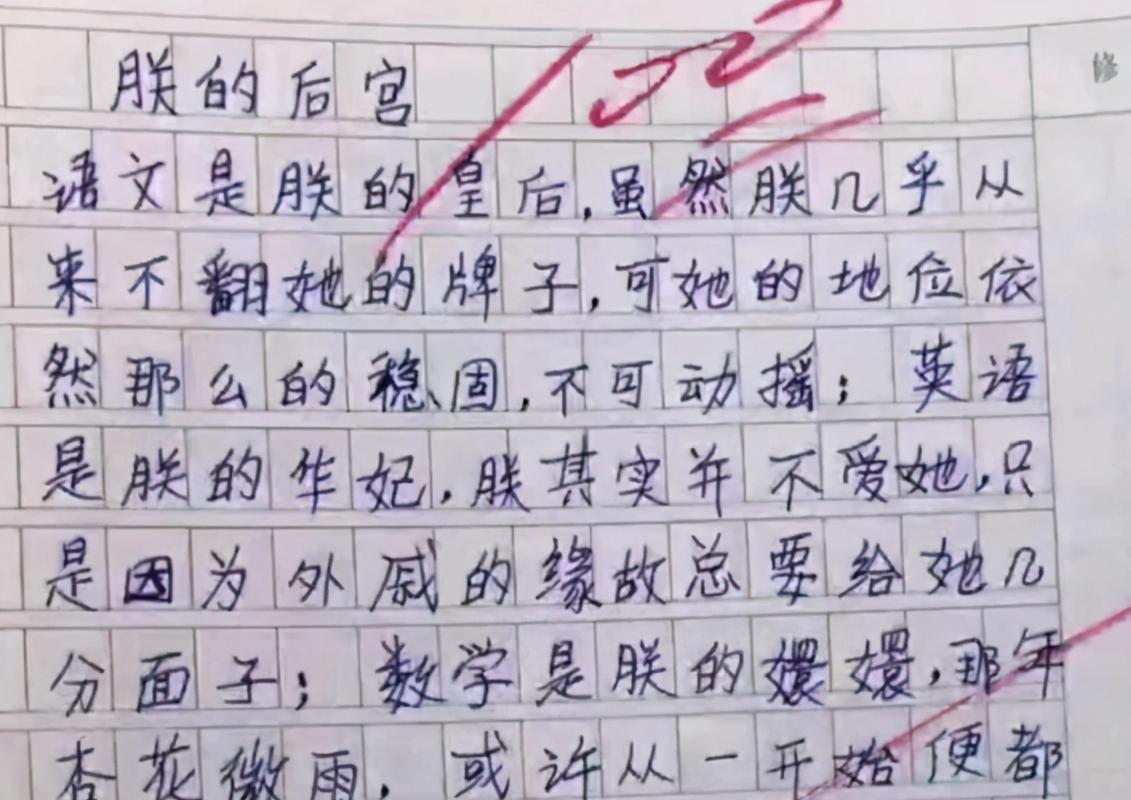 朕的后宫
语文是朕的皇后,虽然朕几乎从
来不翻她的牌子,可她的地位依
然那么的稳固,不可动摇;英语
是朕的华妃,朕其实并不爱她,只
是因为外戚的缘故总要给她几
分面子;数学是朕的嬛嬛,那年
杏花微雨,或许从一开始便都
修